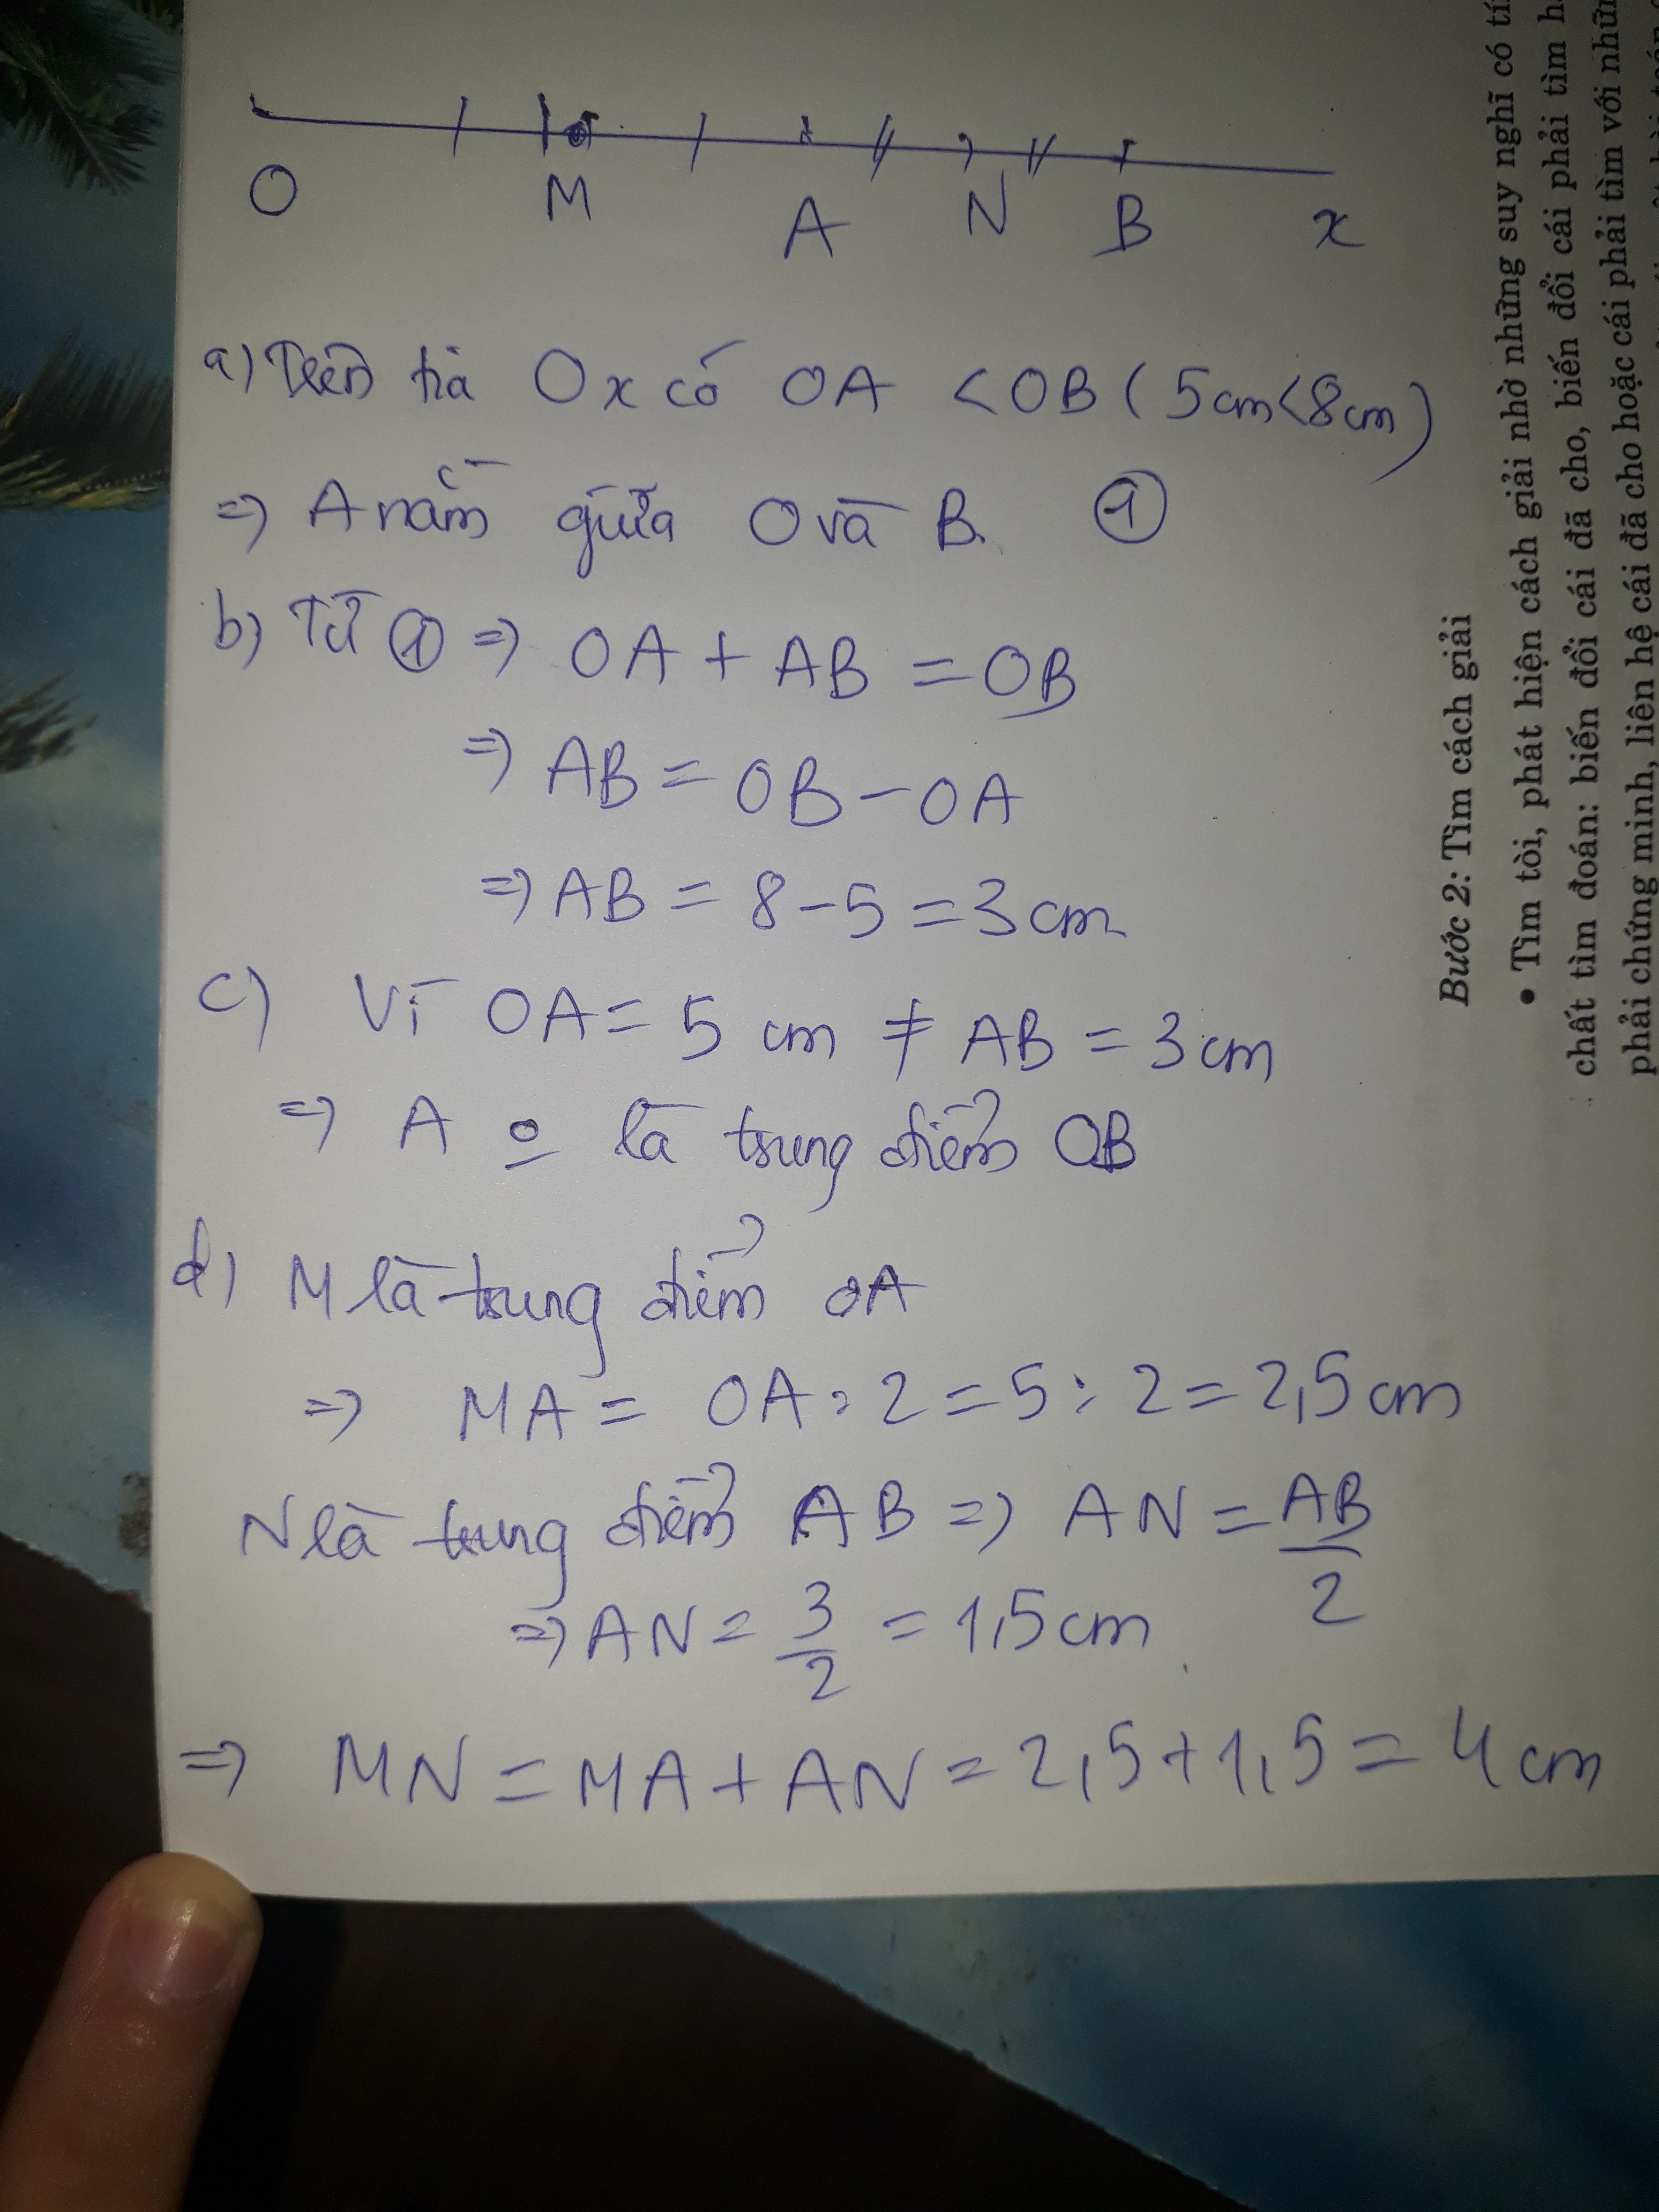 O M A N B x
a) Trên tia Ox có OA < OB (5cm<8cm)
=> A nằm giữa O và B. ①
b) Từ ① => OA + AB = OB
=> AB = OB - OA
=> AB = 8 - 5 = 3 cm
c) Vì OA = 5 cm ≠ AB = 3 cm
=> A là trung điểm OB
d) M là trung điểm OA
=> MA = OA : 2 = 5 : 2 = 2,5 cm
N là trung điểm AB => AN = AB/2
=> AN = 3/2 = 1,5 cm
=> MN = MA + AN = 2,5 + 1,5 = 4 cm
Bước 2: Tìm cách giải
• Tìm tòi, phát hiện cách giải nhờ những suy nghĩ có
chất tìm đoán: biến đổi cái đã cho, biến đổi cái phải tìm
phải chứng minh, liên hệ cái đã cho hoặc cái phải tìm với